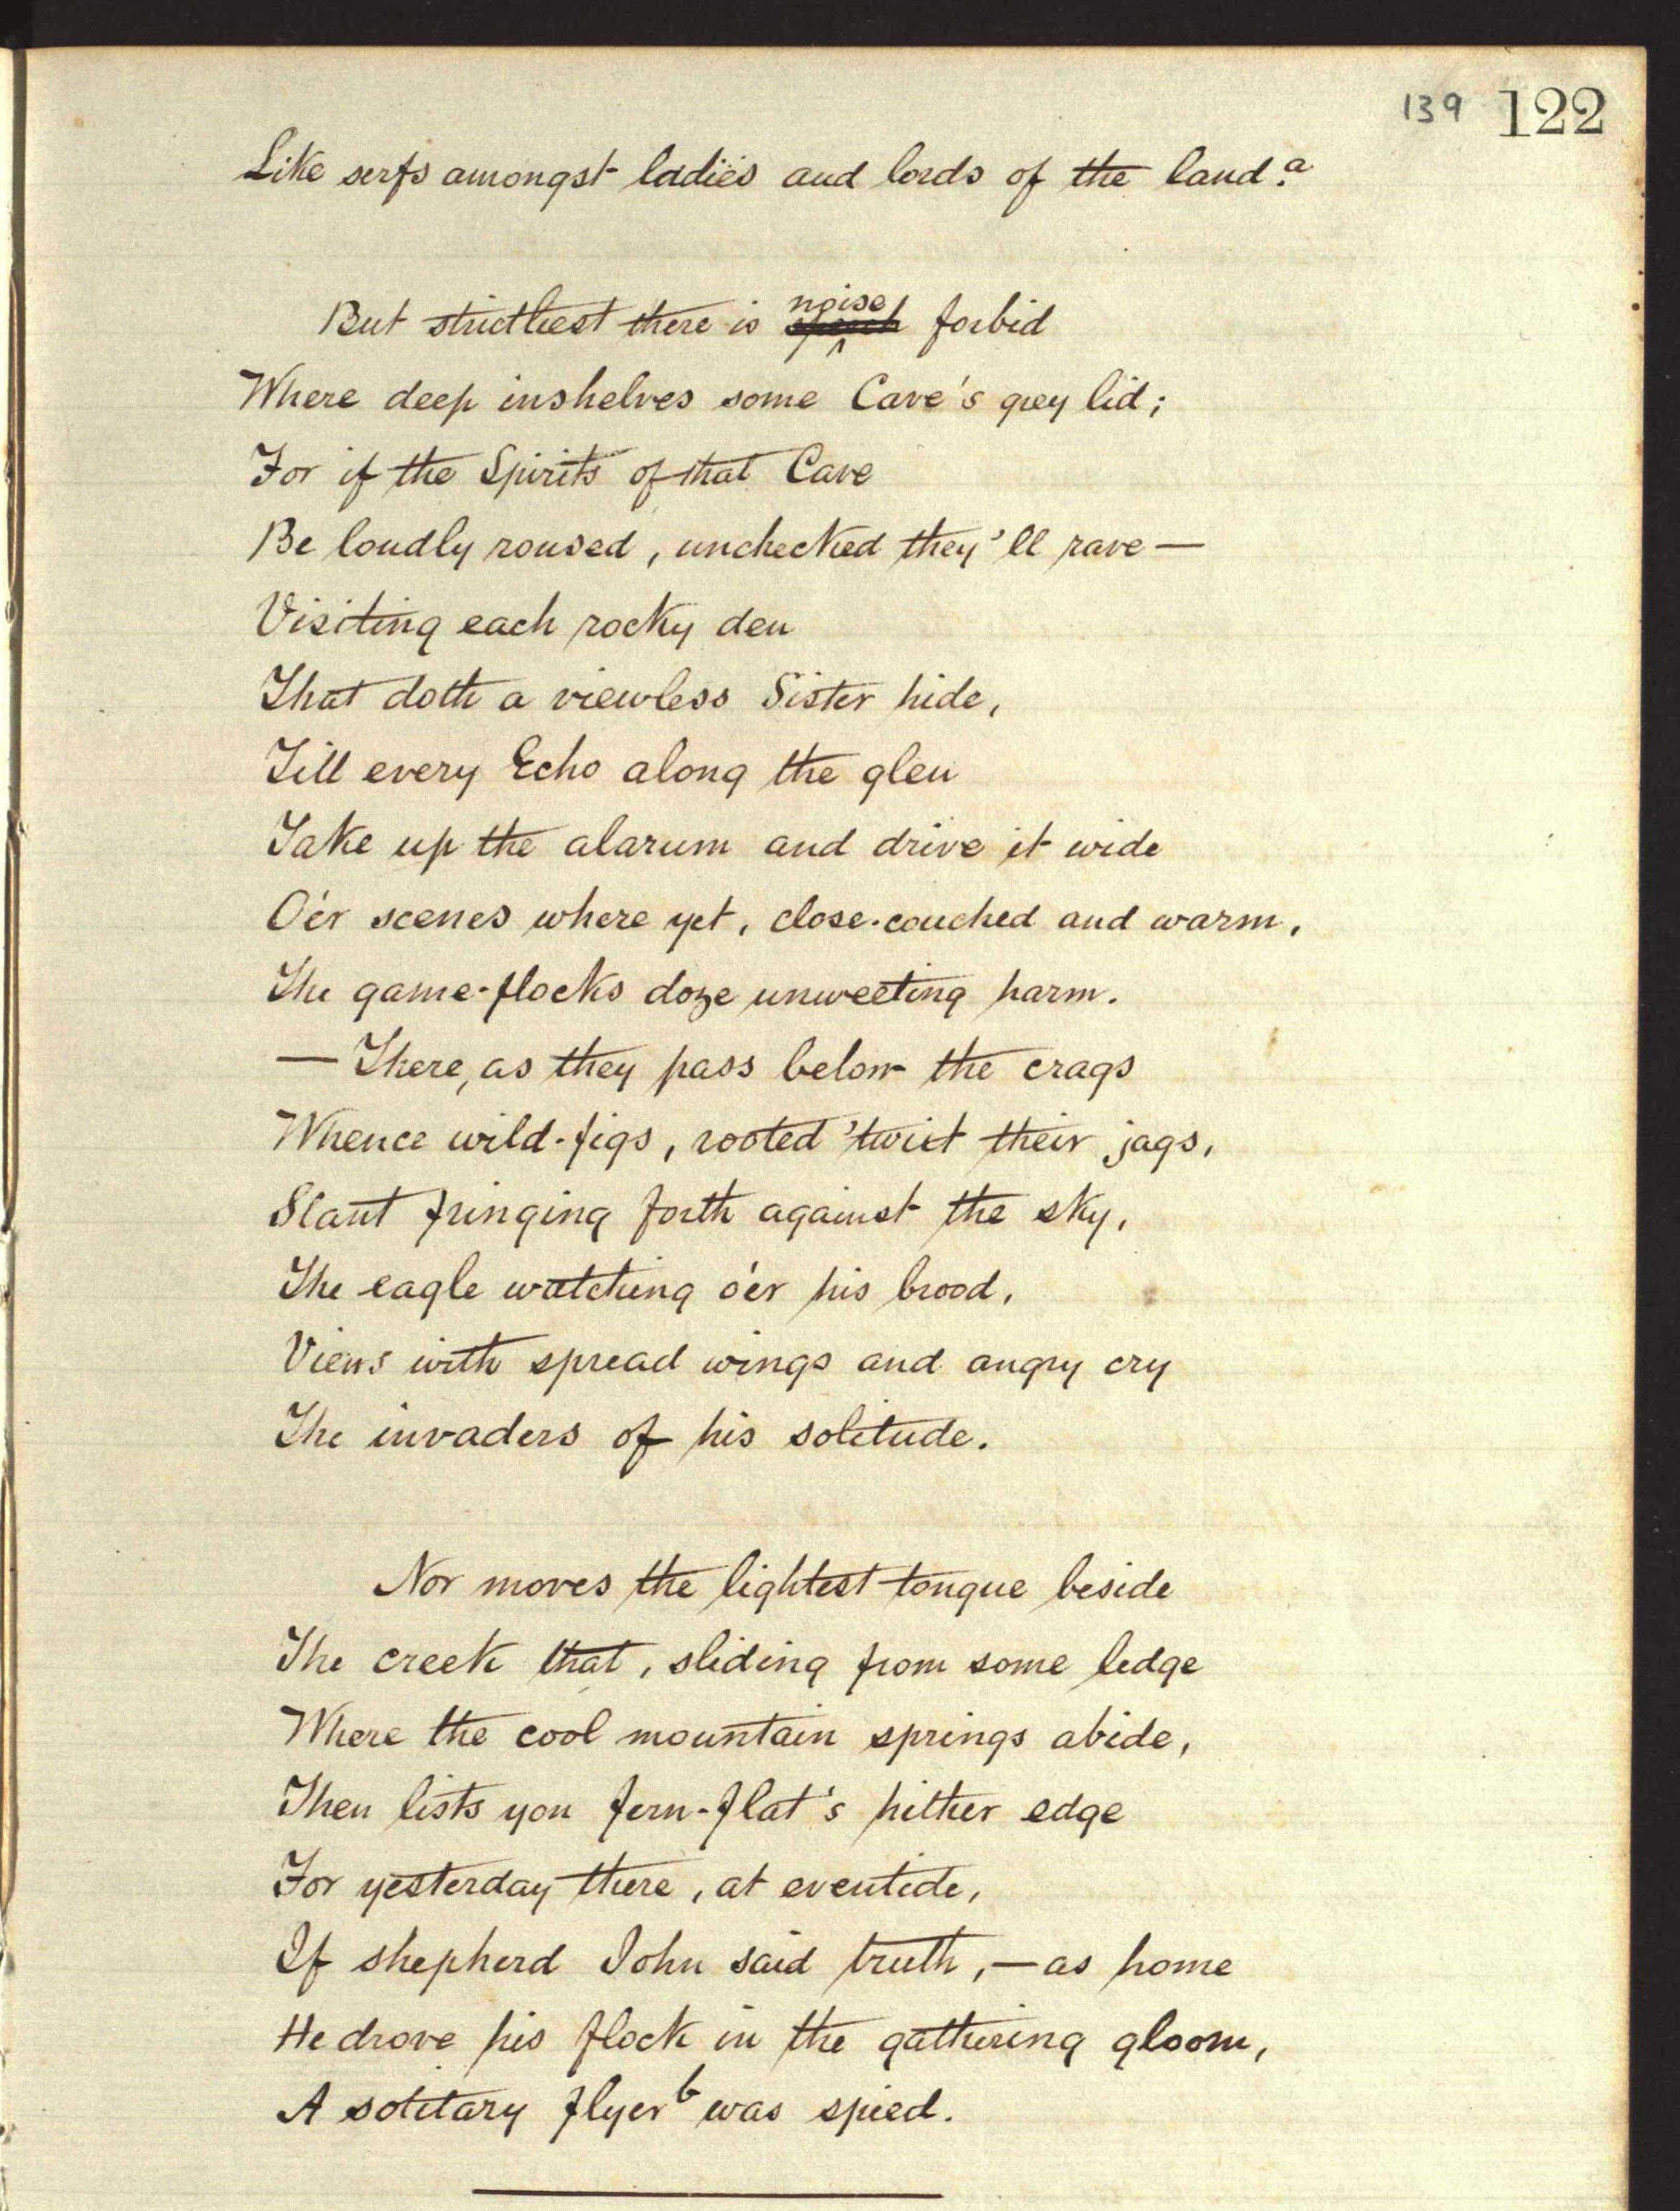 139 122
Like serfs amongst ladies and lords of the land.a
noise
But strictliest there is speech forbid
Where deep inshelves some Cave's grey lid;
For if the Spirits of that Cave
Be loudly roused, unchecked they'll rave —
Visiting each rocky den
That doth a viewless Sister hide,
Till every Echo along the glen
Take up the alarum and drive it wide
O'er scenes where yet, close-couched and warm,
The game-flocks doze unweeting harm.
— There, as they pass below the crags
Whence wild-figs, rooted 'twixt their jags,
Slant fringing forth against the sky,
The eagle watching o'er his brood,
Views with spread wings and angry cry
The invaders of his solitude.
Nor moves the lightest tongue beside
The creek that, sliding from some ledge
Where the cool mountain springs abide,
Then lists yon fern-flat's hither edge
For yesterday there, at eventide,
If shepherd John said truth, — as home
He drove his flock in the gathering gloom,
A solitary flyer b was spied.